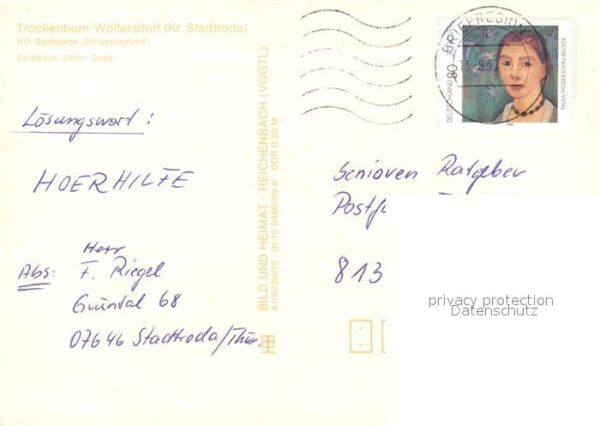 Trockenborn-Wolfersdorf (Kr. Stadtroda)
HO-Gaststätte „Schüsselgrund"
Farbfotos: Sthhr, Greiz
Lösungswort:
HOERHILFE
Abs: Herr
F. Riegel
Grüntal 68
07646 Stadtroda/Thür.
BILD UND HEIMAT · REICHENBACH (VOGTL)
A1/III/26/13 · 01 10 0480/09 K · DDR 0,20 M
BRIEFREGION
DEUTSCHLAND 80
PAULA MODERSOHN-BECKER
Senioren Ratgeber
813
privacy protection
Datenschutz